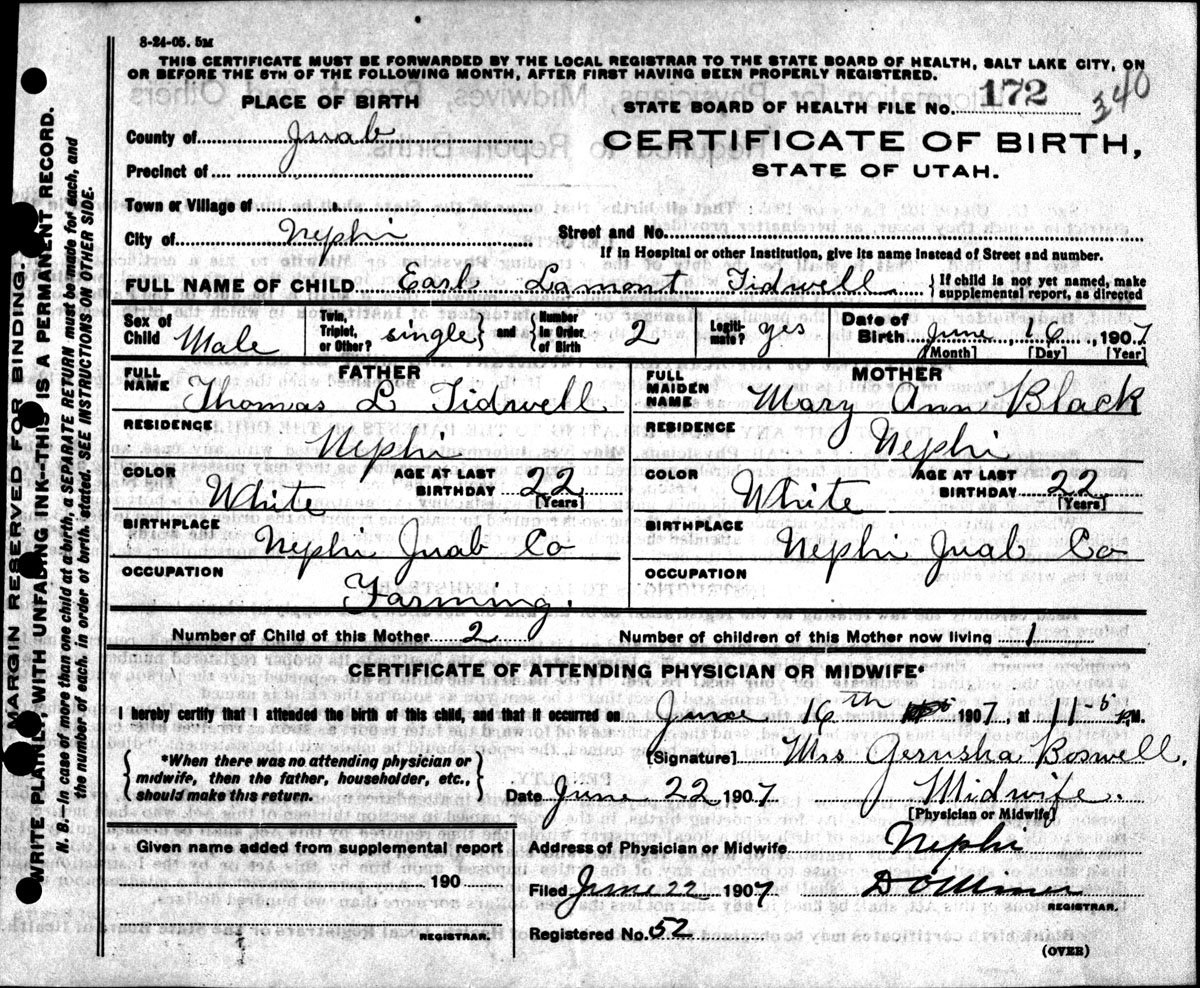 8-24-05. 5M
THIS CERTIFICATE MUST BE FORWARDED BY THE LOCAL REGISTRAR TO THE STATE BOARD OF HEALTH, SALT LAKE CITY, ON
OR BEFORE THE 5TH OF THE FOLLOWING MONTH, AFTER FIRST HAVING BEEN PROPERLY REGISTERED.
PLACE OF BIRTH
STATE BOARD OF HEALTH FILE No. 172 340
County of Juab
CERTIFICATE OF BIRTH,
STATE OF UTAH.
Precinct of
Town or Village of
City of Nephi
Street and No.
If in Hospital or other Institution, give its name instead of Street and number.
FULL NAME OF CHILD Earl Lamont Tidwell { If child is not yet named, make supplemental report, as directed
Sex of Child Male { Twin, Triplet, or Other? single } and { Number in Order of Birth 2 Legitimate? yes Date of Birth June 16 1907
[Month] [Day] [Year]
FATHER
MOTHER
FULL NAME Thomas L Tidwell
FULL MAIDEN NAME Mary Ann Black
RESIDENCE Nephi
RESIDENCE Nephi
COLOR White AGE AT LAST BIRTHDAY 22 [Years]
COLOR White AGE AT LAST BIRTHDAY 22 [Years]
BIRTHPLACE Nephi Juab Co
BIRTHPLACE Nephi Juab Co
OCCUPATION Farming.
OCCUPATION
Number of Child of this Mother 2 Number of children of this Mother now living 1
CERTIFICATE OF ATTENDING PHYSICIAN OR MIDWIFE*
I hereby certify that I attended the birth of this child, and that it occurred on June 16th 1907, at 11-5 P.M.
{ *When there was no attending physician or
midwife, then the father, householder, etc.,
should make this return. }
[Signature] Mrs Jerusha Boswell.
Date June 22 1907 Midwife.
[Physician or Midwife]
Given name added from supplemental report
190
REGISTRAR.
Address of Physician or Midwife Nephi
Filed June 22 1907
REGISTRAR.
Registered No. 52
(OVER)
MARGIN RESERVED FOR BINDING.
WRITE PLAINLY, WITH UNFADING INK—THIS IS A PERMANENT RECORD.
N. B.—In case of more than one child at a birth, a SEPARATE RETURN must be made for each, and
the number of each, in order of birth, stated SEE INSTRUCTIONS ON OTHER SIDE.